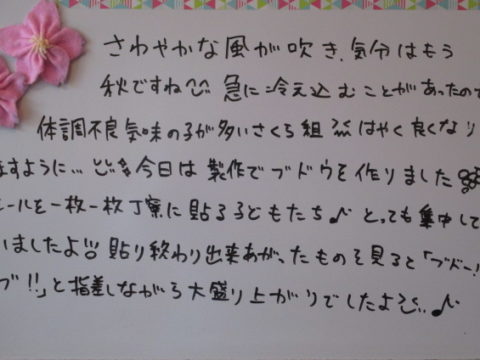 さわやかな風が吹き、気分はもう
秋ですね 急に冷え込むことがあったので
体調不良気味の子が多いさくら組 はやく良くなり
ますように… 今日は製作でブドウを作りました
ールを一枚一枚丁寧に貼る子どもたち♪ とっても集中して
いましたよ!! 貼り終わり出来あがったものを見ると「ブドー!
ブ!!」と指差しながら大盛り上がりでしたよ♪